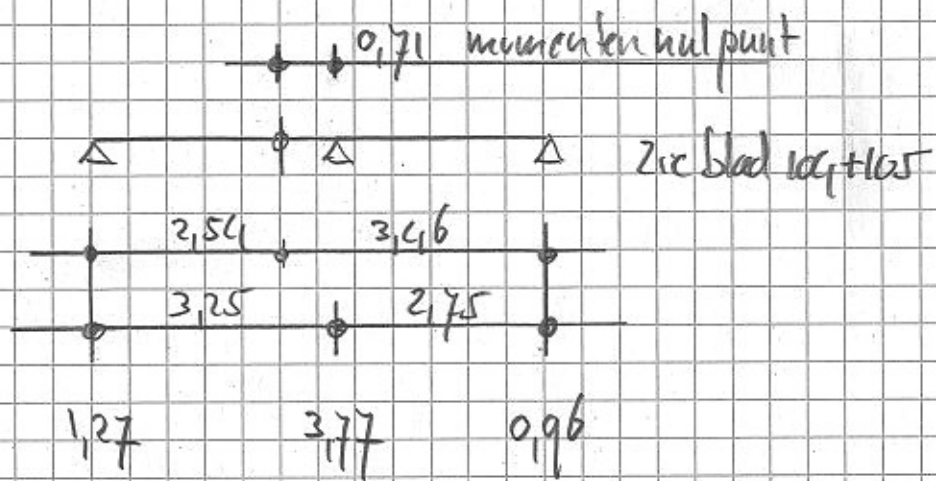 0,71 momentennulpunt
Zie blad 104+105
2,54 3,46
3,25 2,75
1,27 3,77 0,96